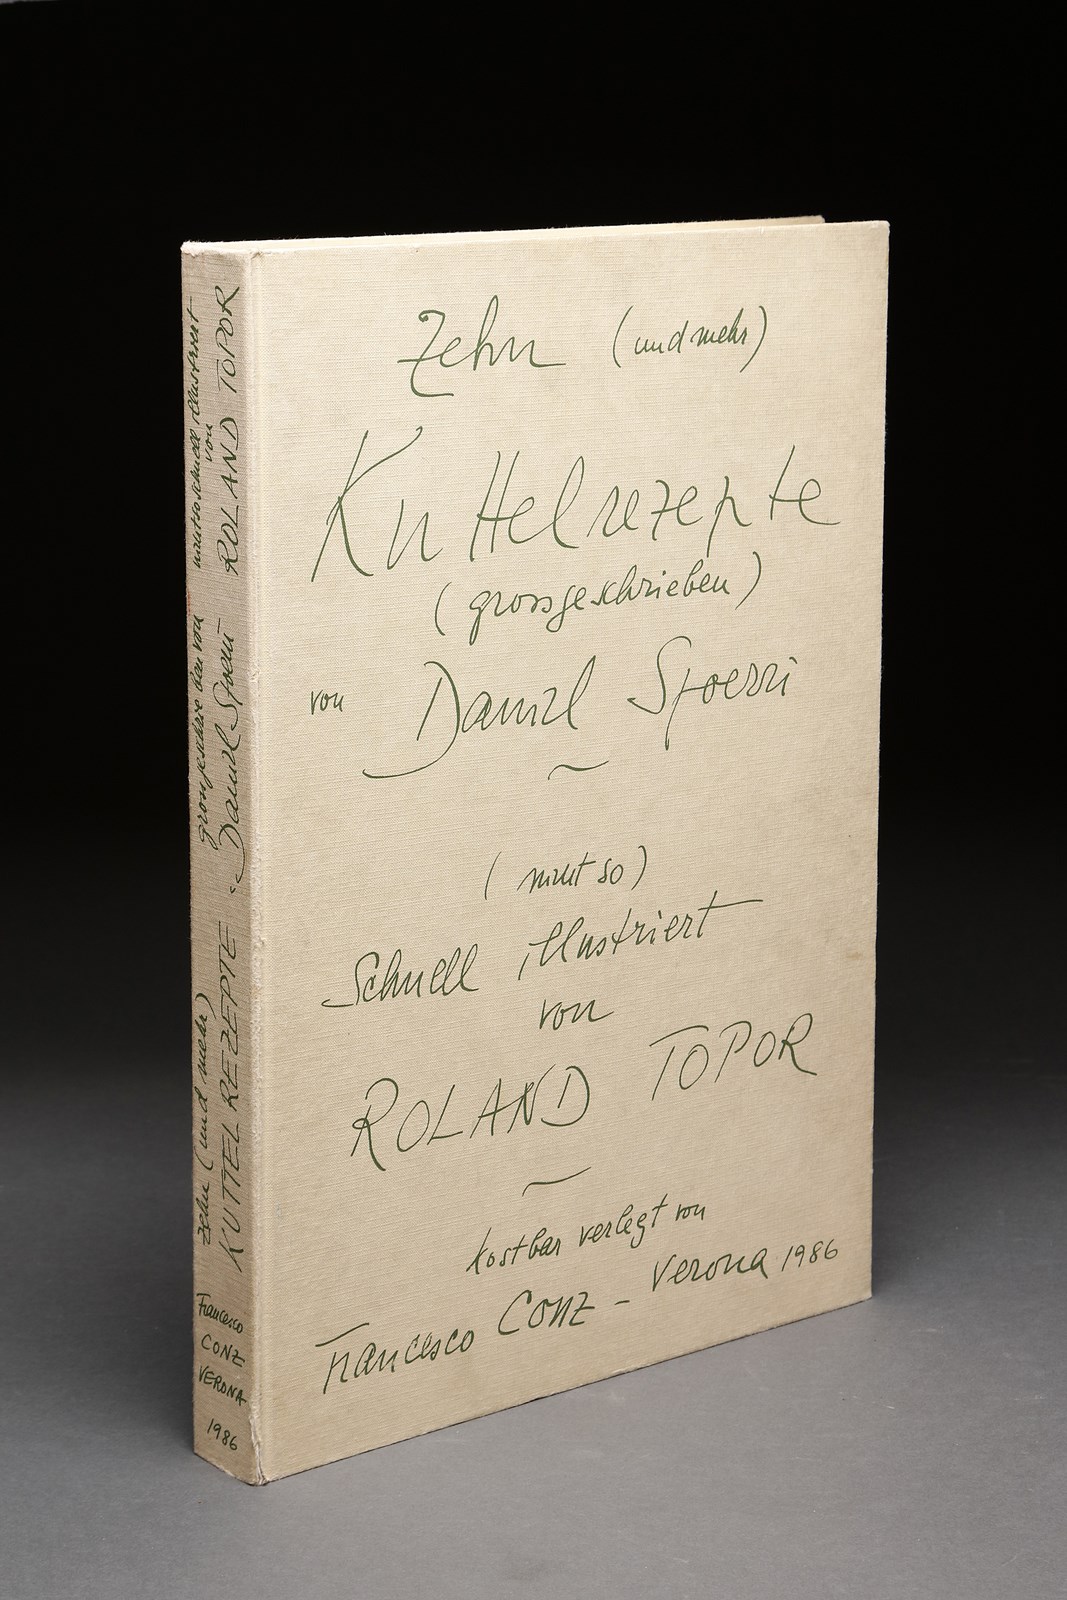 Zehn (und mehr)
Kuttelrezepte
(grossgeschrieben)
von Daniel Spoerri
(nicht so)
Schnell illustriert
von
ROLAND TOPOR
kostbar verlegt von
Francesco Conz – Verona 1986
zehn (und mehr) grossgeschrieben von nicht so schnell illustriert
von
KUTTEL REZEPTE Daniel Spoerri ROLAND TOPOR
Francesco
CONZ
VERONA
1986